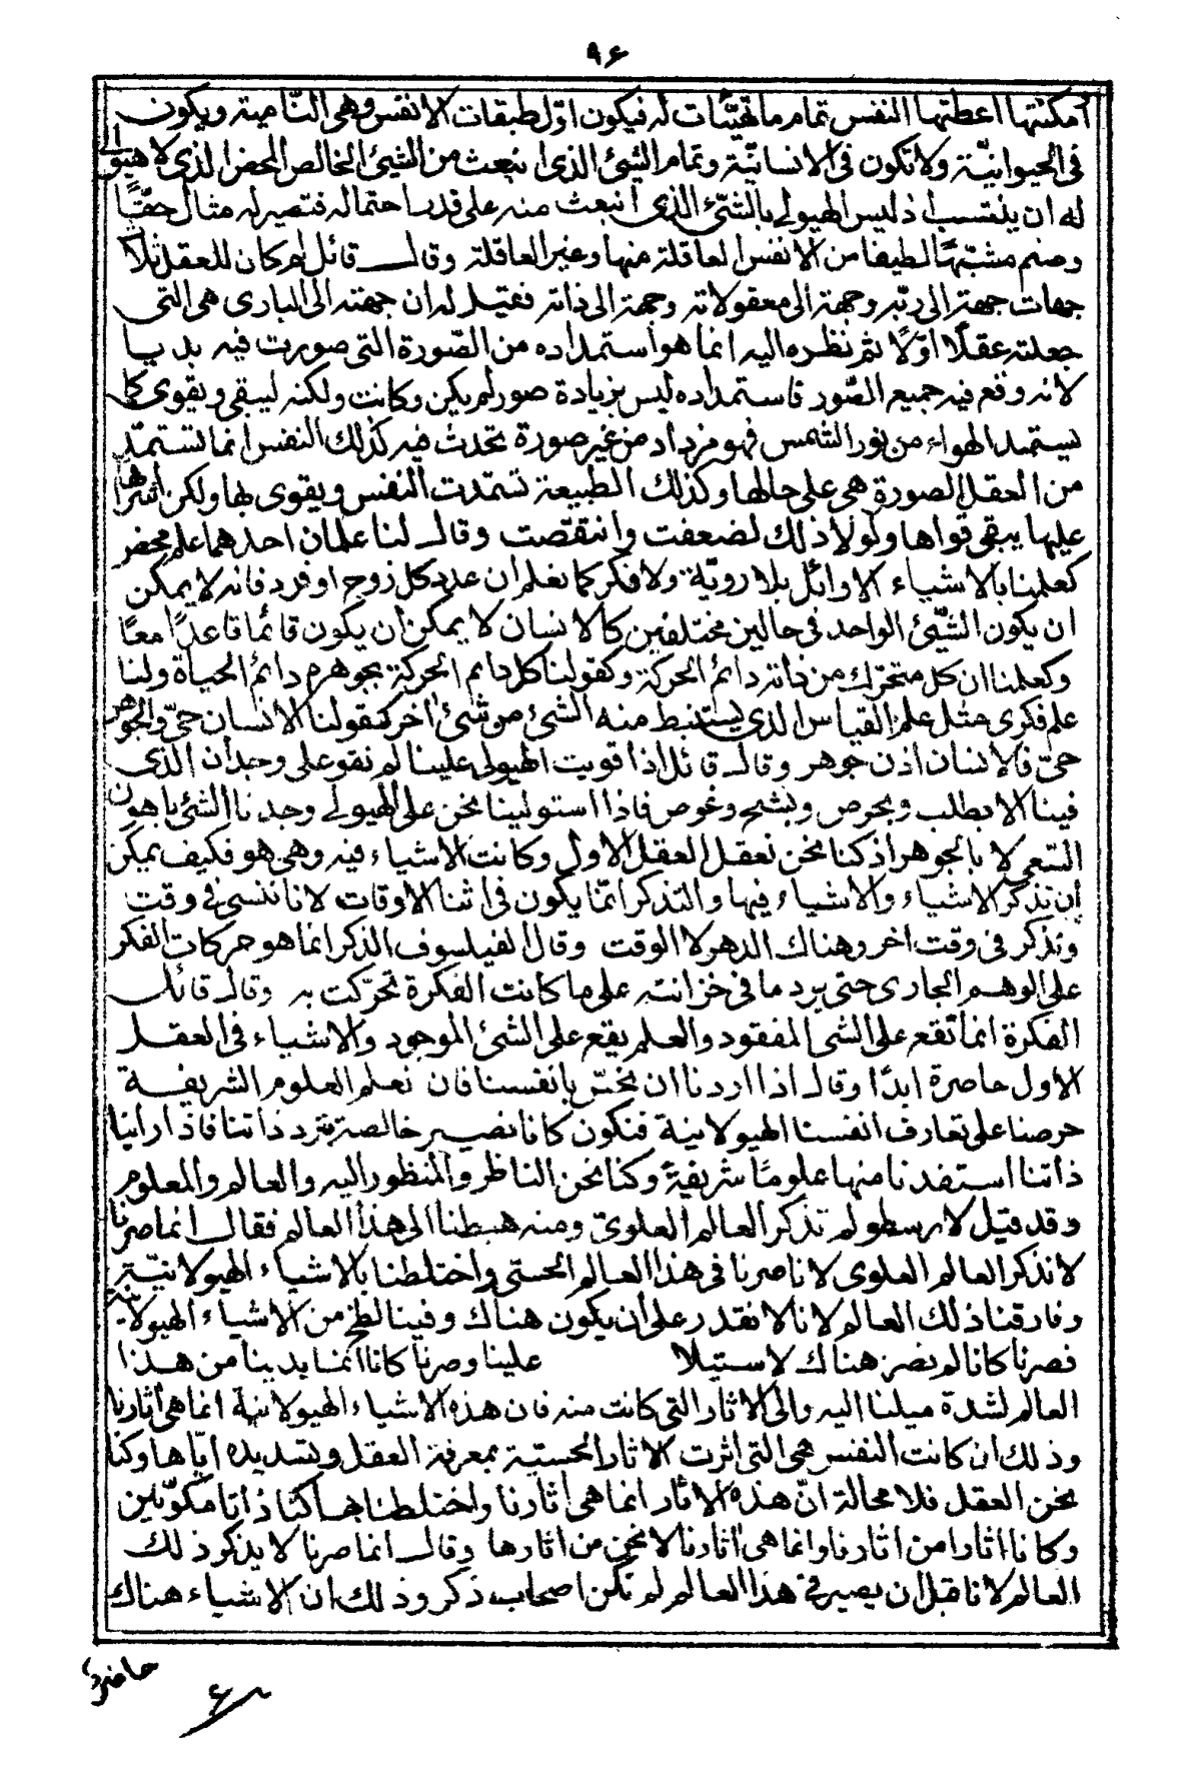 ٩٤
امكنتها اعطتها النفس تمام ما تهيّأت له فيكون اوّل طبقات الانفس وهى النّامية ويكون
فى الحيوانيّة ولا تكون فى الانسانيّة وتمام الشئ الذى انبعث من الشيئ الخالص المحض الذى لا هيولى
له ان ينتسب اذ ليس الهيولى بالشئ الذى انبعث منه على قدر احتماله فتصير له مثال حقيًّا
وصنم مشبّهًا لطيفا من الانفس العاقلة منها وغير العاقلة وقال قائل لم كان للعقل ثلاث
جهات جهة الى ربّه وجهة الى معقولاته وجهة الى ذاته فقيل له ان جهته الى البارى هى التى
جعلته عقلًا اوّلًا ثم نظره اليه انما هو استمداده من الصّورة التى صورت فيه بديا
لانه وقع فيه جميع الصّور فاستمداده ليس بزيادة صور لم يكن وكانت ولكنه ليبقى ويقوى كما
يستمد الهواء من نور الشمس فهو مزداد من غير صورة تحدث فيه كذلك النفس انما تستمدّ
من العقل الصورة هى على حالها وكذلك الطبيعة تستمدت النفس ويقوى بها ولكن اشراها
عليها يبقى قواها ولولا ذلك لضعفت وانتقصت وقال لنا علمان احدهما علم محض
كعلمنا بالاشياء الاوائل بلا رويّة ولا فكر كما نعلم ان عدد كل زوج او فرد فانه لا يمكن
ان يكون الشّئ الواحد فى حالين مختلفين كالانسان لا يمكن ان يكون قائما قاعدًا معًا
وكعلمنا ان كل متحرّك من ذاته دائم الحركة وكقولنا كل دائم الحركة بجوهره دائم الحياة ولنا
علم فكرى مثل علم القياس الذى يستنبط منه الشئ من شئ اخر كقولنا الانسان حىّ والجوهر
حىّ فالانسان اذن جوهر وقال قائل اذا قويت الهيولى علينا لم نقو على وجدان الذى
فينا الا بطلب وبحرص وبشح وغوص فاذا استولينا نحن على الهيولى وجدنا الشئ باهون
السّعى لا بالجوهر اذ كنا نحن نعقل العقل الاول وكانت الاشياء فيه وهى هو فكيف يمكن
ان نذكر الاشياء والاشياء فيها والتذكر انّما يكون فى اثنا الاوقات لانا ننسى فى وقت
ونذكر فى وقت اخر وهناك الدهر لا الوقت وقال الفيلسوف الذكر انما هو حركات الفكر
على الوهم الجارى حتى يرد ما فى خزانته على ما كانت الفكرة تحرّكت به وقال قائل
الفكرة انما تقع على الشئ المفقود والعلم يقع على الشئ الموجود والاشياء فى العقل
الاول حاصرة ابدًا وقال اذا اردنا ان نحسّ بانفسنا فان نعلم العلوم الشريفة
حرصنا على تعارف انفسنا الهيولانية فنكون كانا نصير خالصة نترد ذاتنا فاذا راينا
ذاتنا استفدنا منها علومًا شريفةً وكنا نحن الناظر والمنظور اليه والعالم والمعلوم
وقد قيل لارسطو لم تذكر العالم العلوىّ ومنه هبطنا الى هذا العالم فقال انما صرنا
لا نذكر العالم العلوى لانا صرنا فى هذا العالم الحسّى واختلطنا بالاشياء الهيولانيّة
وفارقنا ذلك العالم لانا لا نقدر على ان يكون هناك وفينا لطخ من الاشياء الهيولانية
فصرنا كانا لم نصر هناك لاستيلا علينا وصرنا كانا انما بدينا من هذا
العالم لشدة ميلنا اليه والى الاثار التى كانت منه فان هذه الاشياء الهيولانية انما هى اثارنا
وذلك ان كانت النفس هى التى اثرت الاثار الحسيّة بمعرفة العقل وتسديده ايّاها وكنا
نحن العقل فلا محالة انّ هذه الاثار انما هى اثارنا واختلطنا بها كنا ذاتا مكوّنين
وكانا اثارا من اثارنا وانما هى اثارنا لا نحن من اثارها وقال انما صرنا لا يذكر ذلك
العالم لانا قبل ان يصير فى هذا العالم لم نكن اصحاب ذكر وذلك ان الاشياء هناك
حاضرة